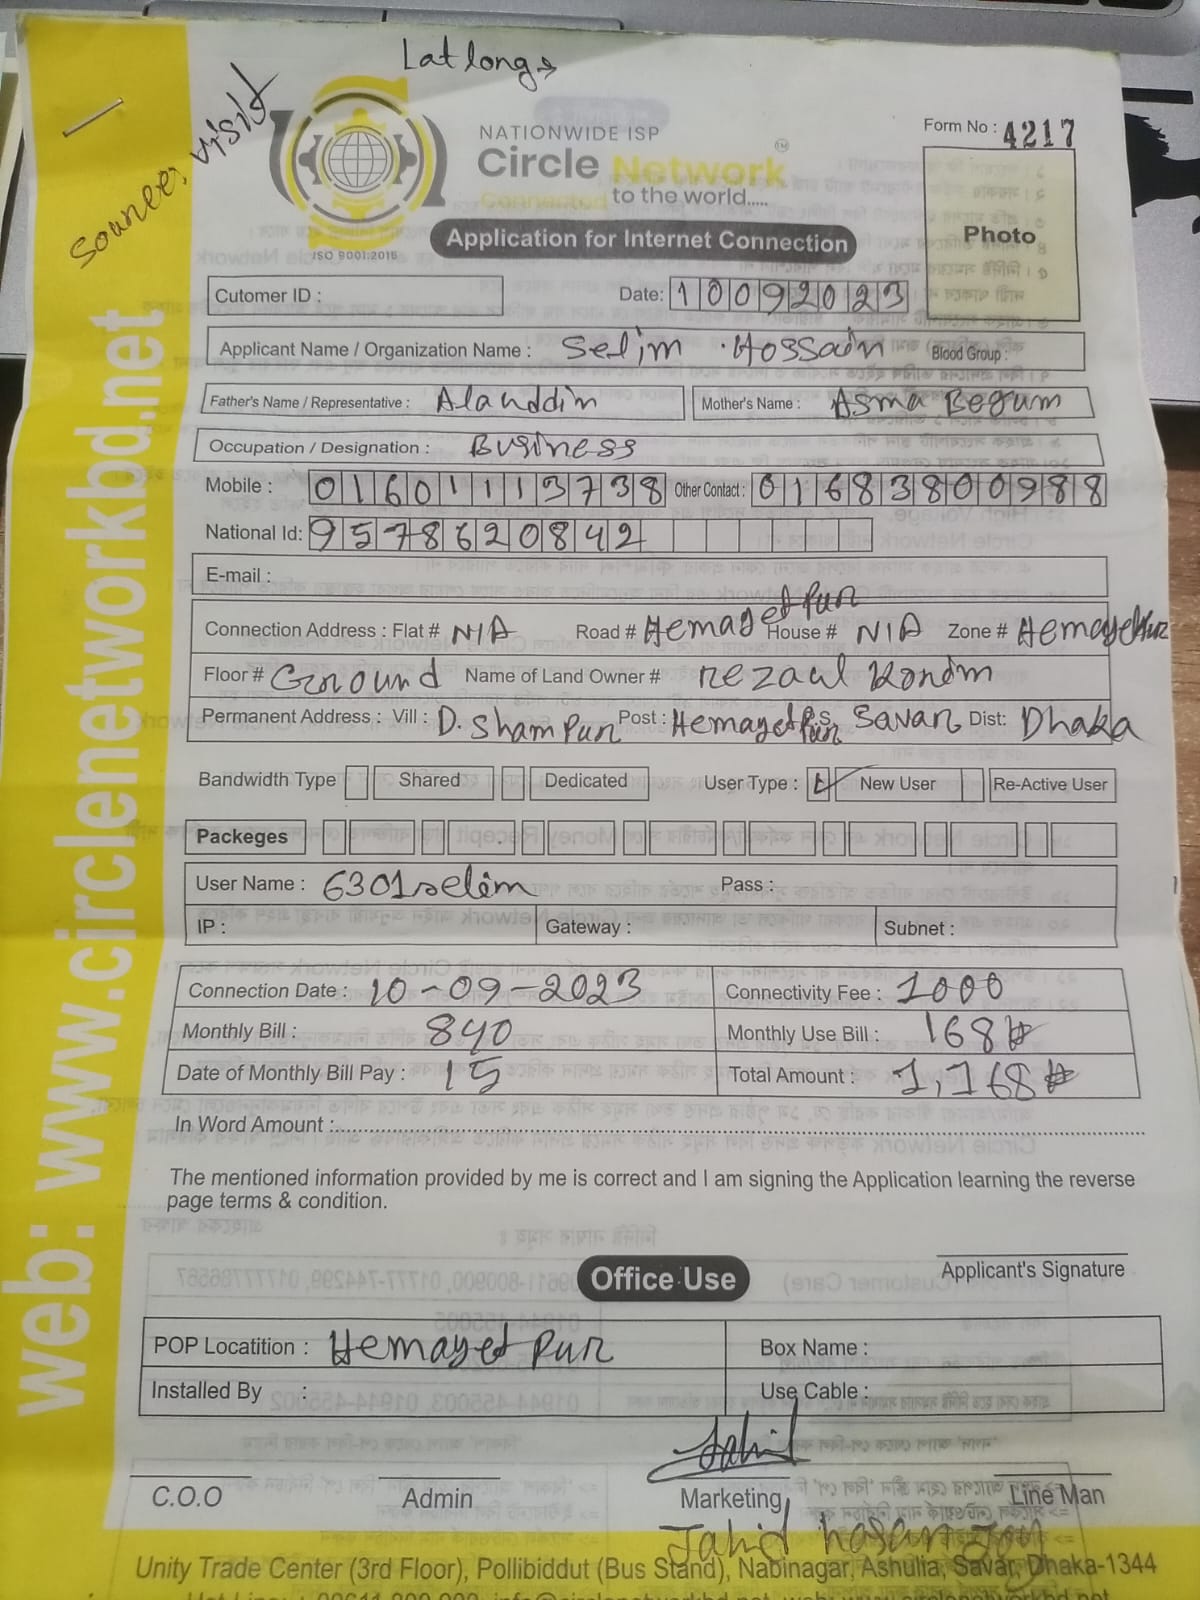 Lat long→
visit
NATIONWIDE ISP
Circle Network TM
Connected to the world.....
ISO 9001:2015
Form No : 4217
Photo
Application for Internet Connection
Cutomer ID :
Date: 10092023
Applicant Name / Organization Name : Selim Hossain Blood Group :
Father's Name / Representative : Alauddin Mother's Name : Asma Begum
Occupation / Designation : Business
Mobile : 01601113738 Other Contact : 01683800988
National Id: 9578620842
E-mail :
Connection Address : Flat # N/A Road # Hemayetpur House # N/A Zone # Hemayetpur
Floor # Ground Name of Land Owner # Rezaul Karim
Permanent Address : Vill : D. Shampur Post : Hemayetpur P.S. Savar Dist: Dhaka
Bandwidth Type Shared Dedicated User Type : New User Re-Active User
Packeges
User Name : 6301selim Pass :
IP : Gateway : Subnet :
Connection Date : 10-09-2023 Connectivity Fee : 1000
Monthly Bill : 840 Monthly Use Bill : 168
Date of Monthly Bill Pay : 15 Total Amount : 1,168
In Word Amount :
The mentioned information provided by me is correct and I am signing the Application learning the reverse
page terms & condition.
Applicant's Signature
Office Use
POP Locatition : Hemayet Pur Box Name :
Installed By : Use Cable :
Jahid
C.O.O Admin Marketing Line Man
Jahid Hasan
Unity Trade Center (3rd Floor), Pollibiddut (Bus Stand), Nabinagar, Ashulia, Savar, Dhaka-1344
web: www.circlenetworkbd.net